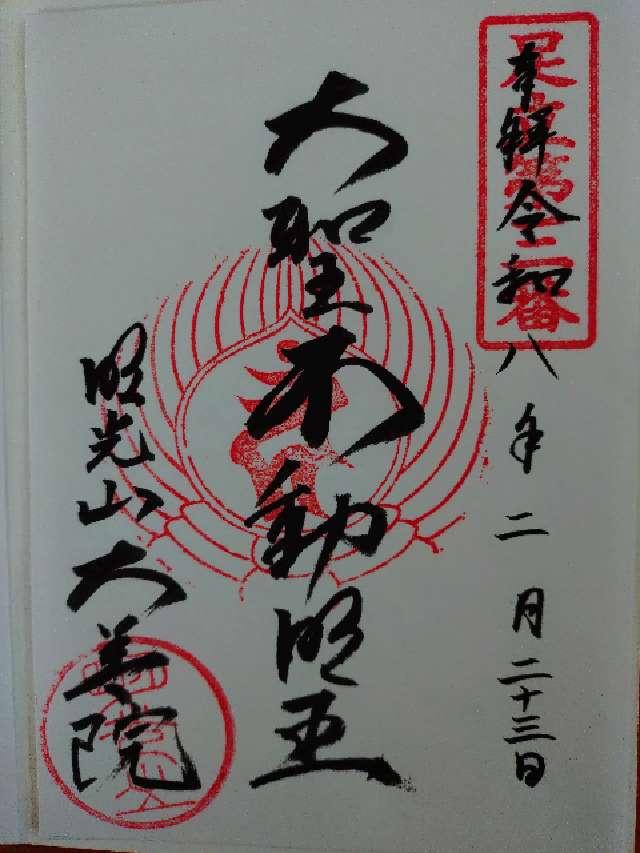 奉拝令和八年二月二十三日
大聖不動明王
明光山大善院